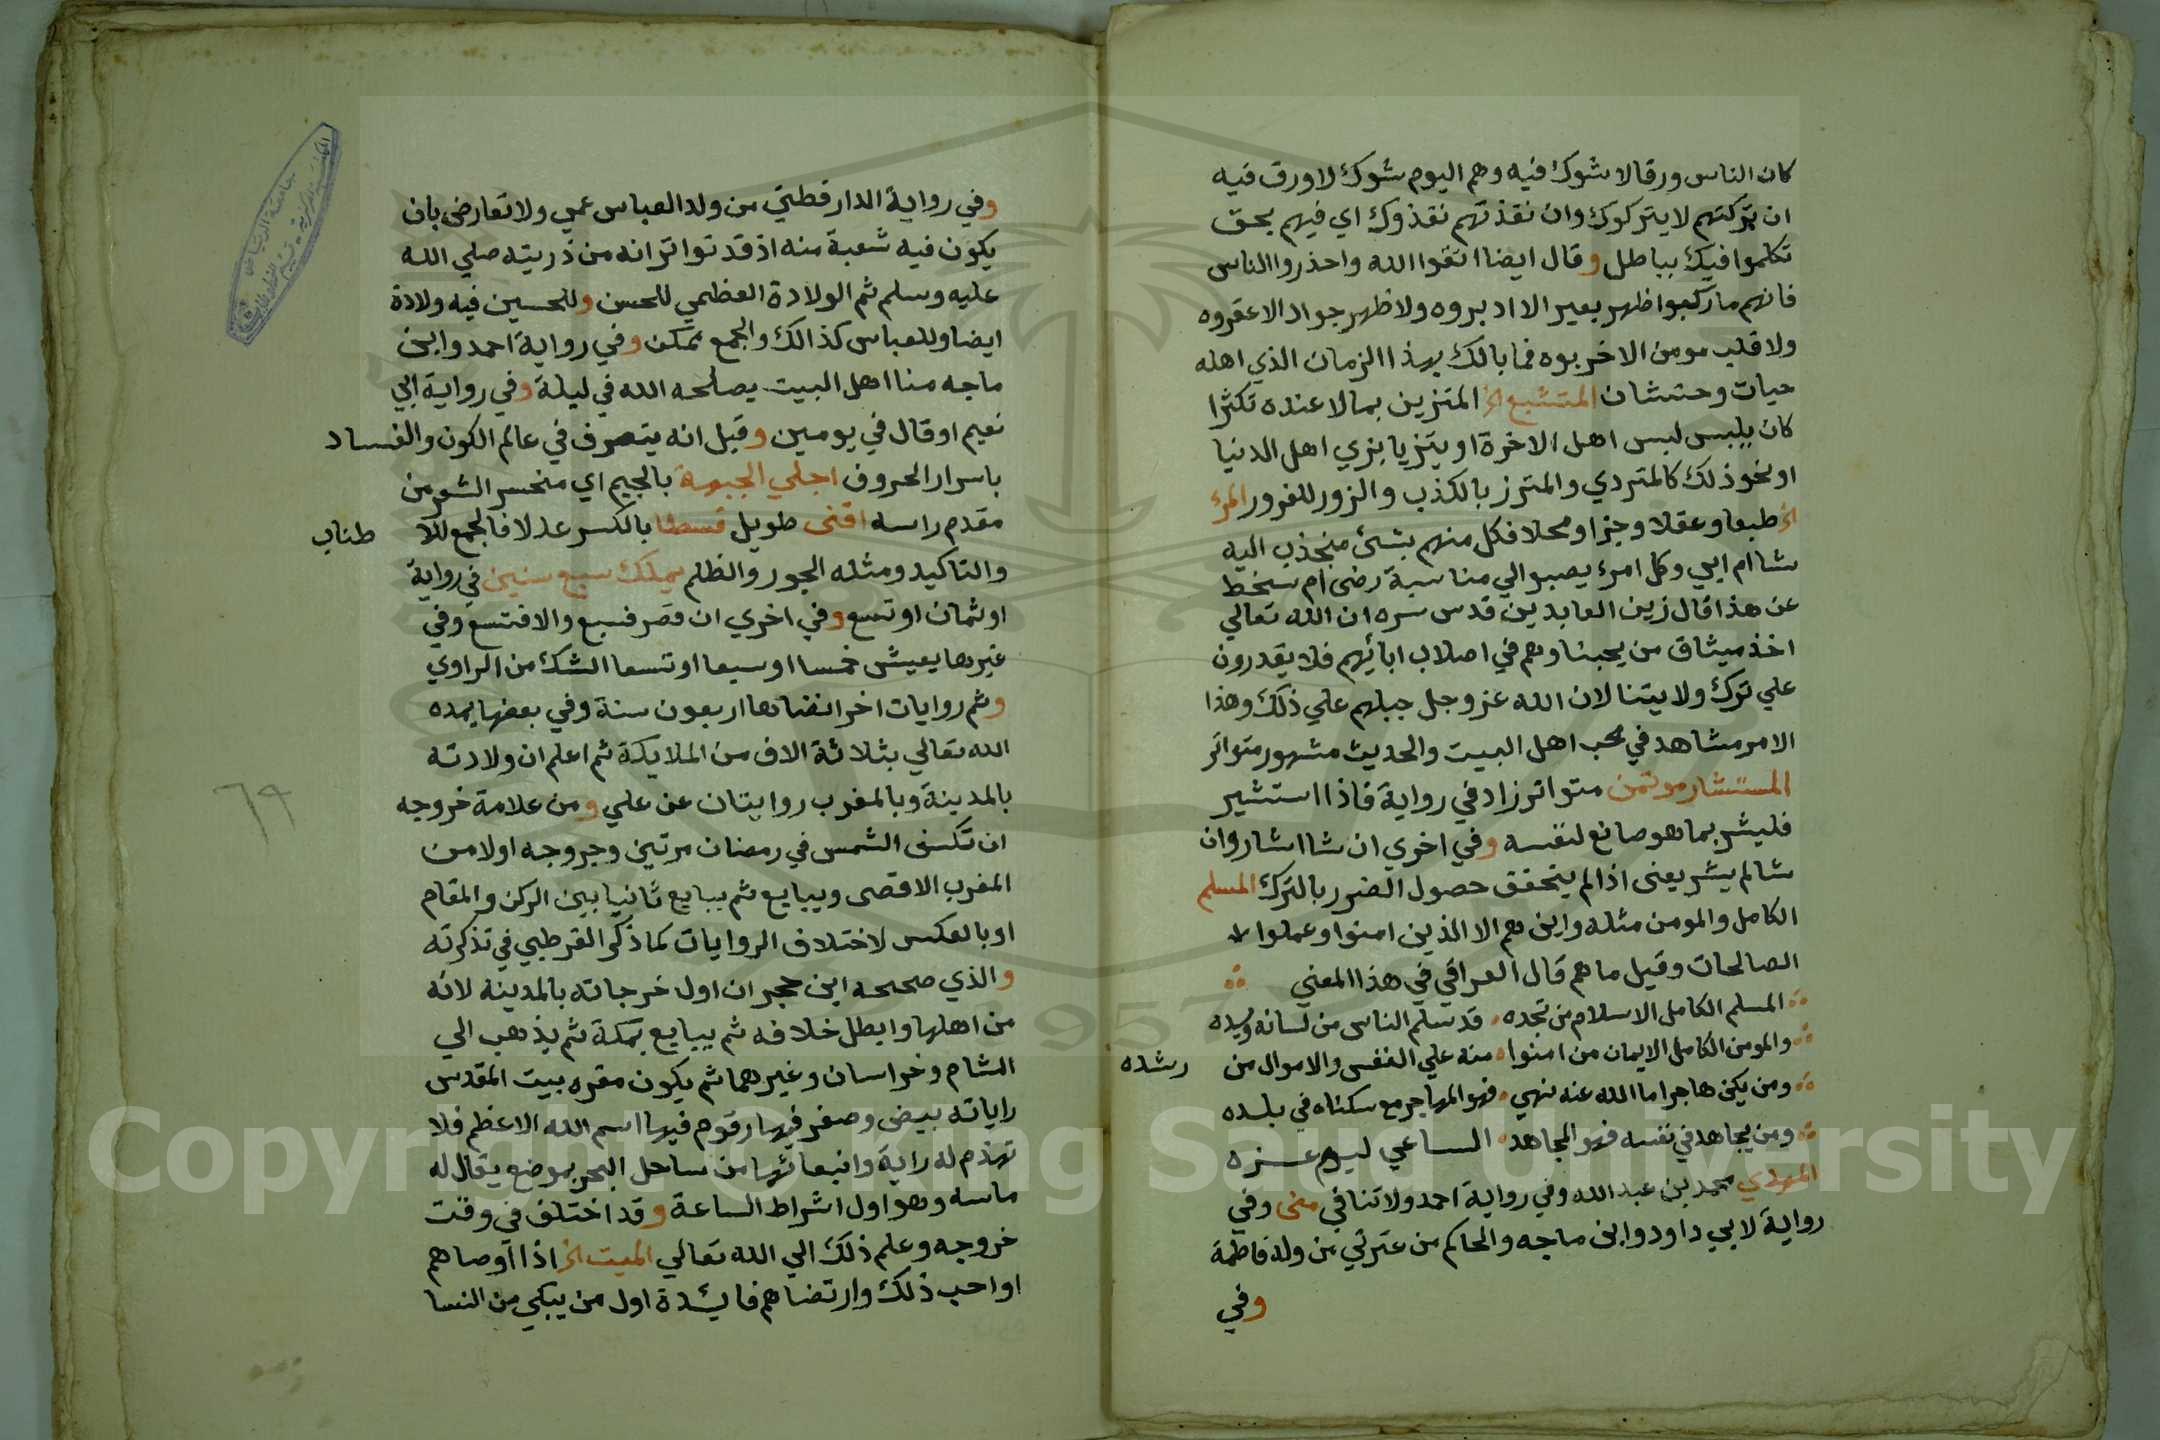 كان الناس ورقا لا شوك فيه وهم اليوم شوك لا ورق فيه
ان تركتهم لا يتركوك وان نقذتهم نقذوك اي فيهم بحق
تكلموا فيك بباطل وقال ايضا اتقوا الله واحذروا الناس
فانهم ما ركبوا ظهر بعير الا ادبروه ولا ظهر جواد الا عقروه
ولا قلب مومن الا خربوه فما بالك بهذا الزمان الذي اهله
حيات وحششان المتشبع الخ المتزين بما لا عنده تكثرا
كان يلبس لبس اهل الاخرة او يتزيا بزي اهل الدنيا
او نحو ذلك كالمتردي والمتزر بالكذب والزور للغرور المرء
الخ طبعا وعقلا وجزا ومحلا فكل منهم بشئ منجذب اليه
شا ام ابي وكل امرء يصبوا الي مناسبة رضى ام سخط
عن هذا قال زين العابدين قدس سره ان الله تعالي
اخذ ميثاق من يحبنا وهم في اصلاب ابائهم فلا يقدرون
علي ترك ولايتنا لان الله عز وجل جبلهم علي ذلك وهذا
الامر مشاهد في محب اهل البيت والحديث مشهور متواتر
المستشار موتمن متواتر زاد في رواية فاذا استشير
فليشر بما هو صانع لنفسه وفي اخري ان شا اشار وان
شا لم يشر يعنى اذا لم يتحقق حصول الضرر بالترك المسلم
الكامل والمومن مثله واين هم الا الذين امنوا وعملوا
الصالحات وقيل ما هم قال العراقي في هذا المعني
المسلم الكامل الاسلام من تحده قد سلم الناس من لسانه ويده
والمومن الكامل الايمان من امنوا منه علي النفس والاموال من رشده
ومن يكن هاجرا ما الله عنه نهي فهو المهاجر مع سكناه في بلده
ومن يجاهد في نفسه فهو المجاهد الساعي ليوم غزه
المهدي محمد بن عبد الله وفي رواية احمد ولا تنافي منى وفي
رواية لابي داود وابن ماجه والحاكم من عترتي من ولد فاطمة
وفي
وفي رواية الدارقطني من ولد العباس عمي ولا تعارض بان
يكون فيه شعبة منه اذ قد تواتر انه من ذريته صلي الله
عليه وسلم ثم الولادة العظمي للحسن وللحسين فيه ولادة
ايضا وللعباس كذالك والجمع ممكن وفي رواية احمد وابن
ماجه منا اهل البيت يصلحه الله في ليلة وفي رواية ابي
نعيم او قال في يومين وقيل انه يتصرف في عالم الكون والفساد
باسرار الحروف اجلي الجبهة بالجيم اي منحسر الشعر من
مقدم راسه اقنى طويل قسطا بالكسر عدلا فالجمع للا طناب
والتاكيد ومثله الجور والظلم يملك سبع سنين في رواية
او ثمان او تسع وفي اخري ان قصر فسبع والا فتسع وفي
غيرها يعيش خمسا او سبعا او تسعا الشك من الراوي
وثم روايات اخر انضاها اربعون سنة وفي بعضها يمده
الله تعالي بثلاثة الاف من الملايكة ثم اعلم ان ولادته
بالمدينة وبالمغرب روايتان عن علي ومن علامة خروجه
ان تكسف الشمس في رمضان مرتين وخروجه اولا من
المغرب الاقصى ويبايع ثم يبايع ثانيا بين الركن والمقام
او بالعكس لاختلاف الروايات كما ذكر القرطبي في تذكرته
والذي صححه ابن حجر ان اول خرجاته بالمدينة لانه
من اهلها وابطل خلافه ثم يبايع بمكة ثم يذهب الي
الشام وخراسان وغيرهما ثم يكون مقره بيت المقدس
راياته بيض وصفر فيها رقوم فيها اسم الله الاعظم فلا
تهزم له راية وانبعاثها من ساحل البحر بموضع يقال له
ماسه وهو اول اشراط الساعة وقد اختلف في وقت
خروجه وعلم ذلك الي الله تعالي الميت الخ اذا اوصاهم
او احب ذلك وارتضاهم فايدة اول من يبكي من النسا
٦٩
Copyright © King Saud University
1957